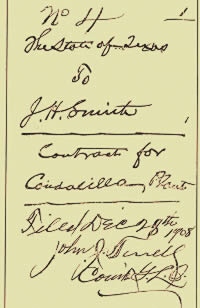 No 4 1
The State of Texas
To
J. H. Smith
Contract for
Candelilla Plant
Filed Dec 20th 1908
John J. Terrell
Com G L O